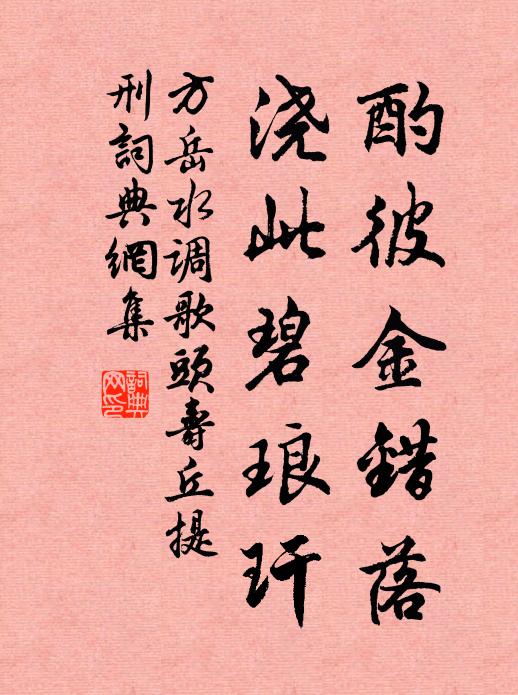 酌彼金错落
浇此碧琅玕
方岳水调歌頭壽丘提
刑詞典網集
詞典网印